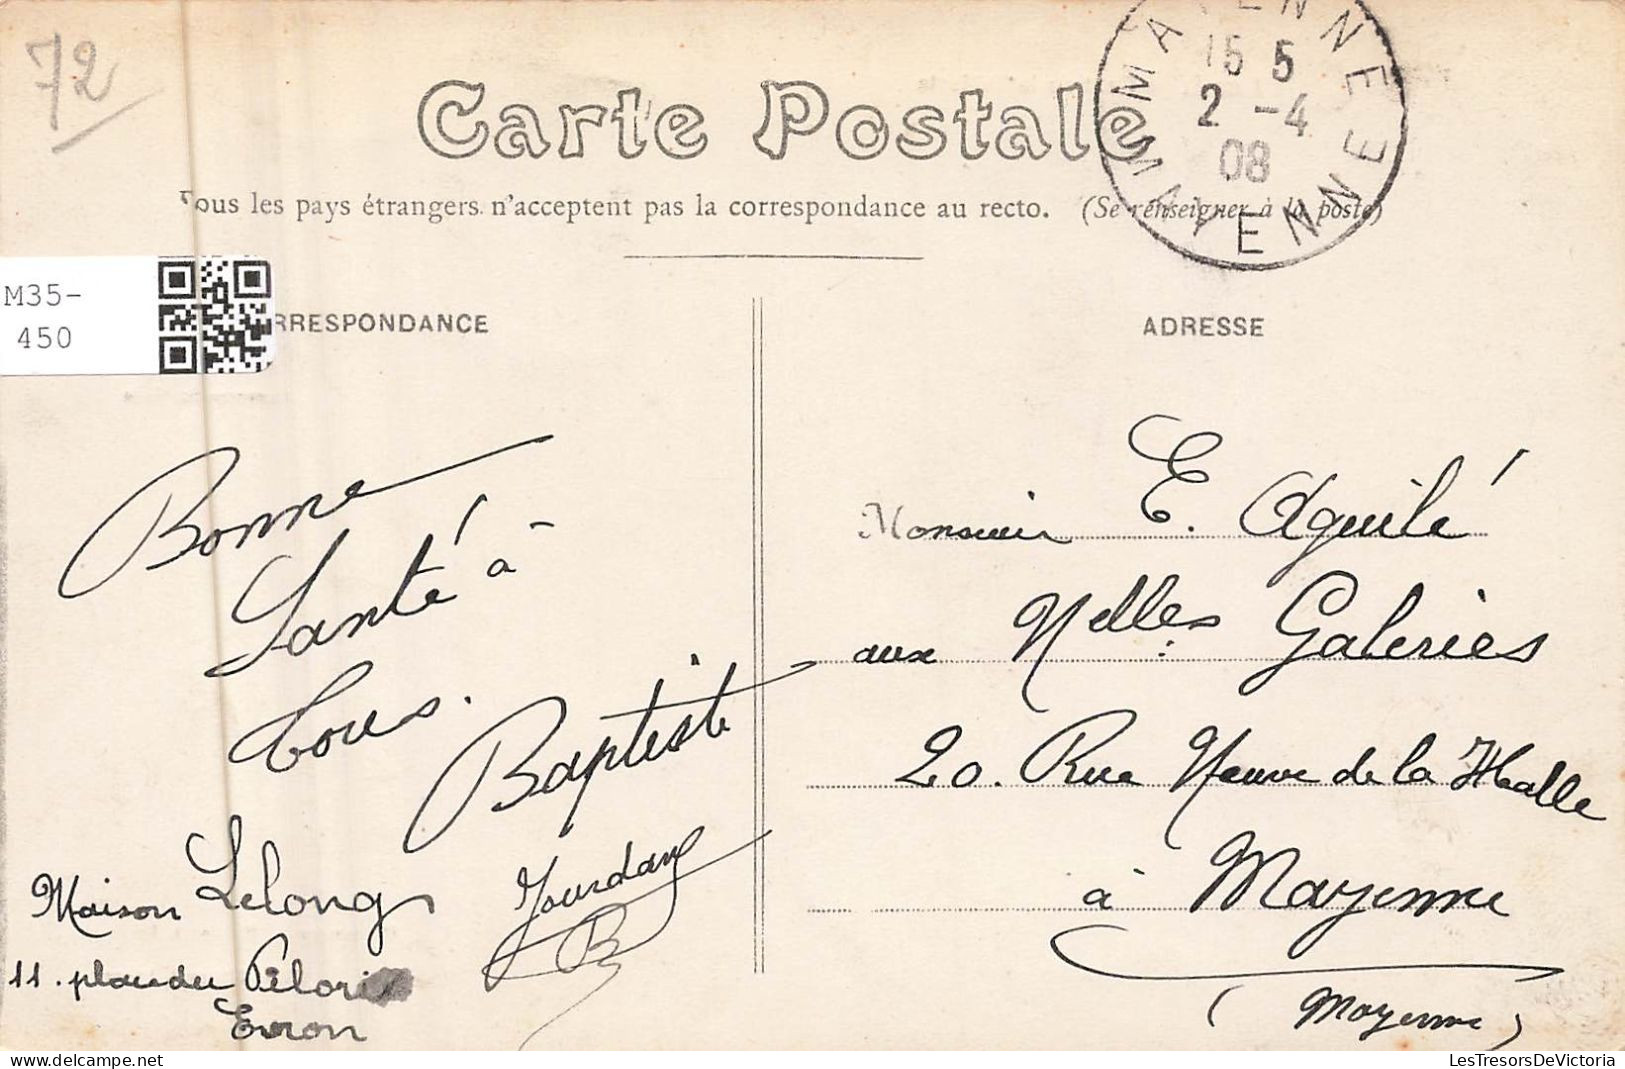 72
Carte Postale
MAYENNE MAYENNE
15 5
2 -4
08
Tous les pays étrangers n'acceptent pas la correspondance au recto. (Se renseigner à la poste)
M35-
450
RRESPONDANCE
ADRESSE
Bonne
Santé à
tous.
Baptiste
Jourdan
B
Maison Lelong
11. place du Pilori
Evron
Monsieur E. Aguilé
aux Nelles Galeries
20. Rue Neuve de la Halle
à Mayenne
(Mayenne)
LesTresorsDeVictoria